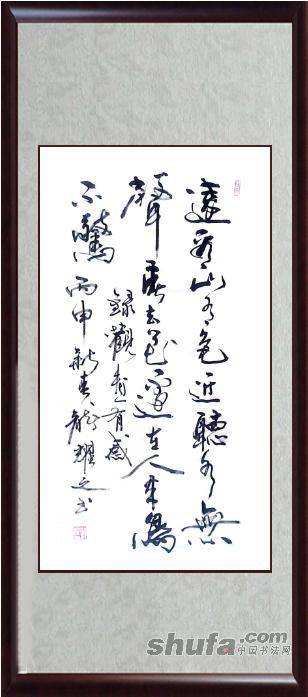 遠看山有色近聽水無
聲春去花還在人來鳥
不驚
錄觀畫有感
丙申新春 耀之书
shufa.com
中国书法网